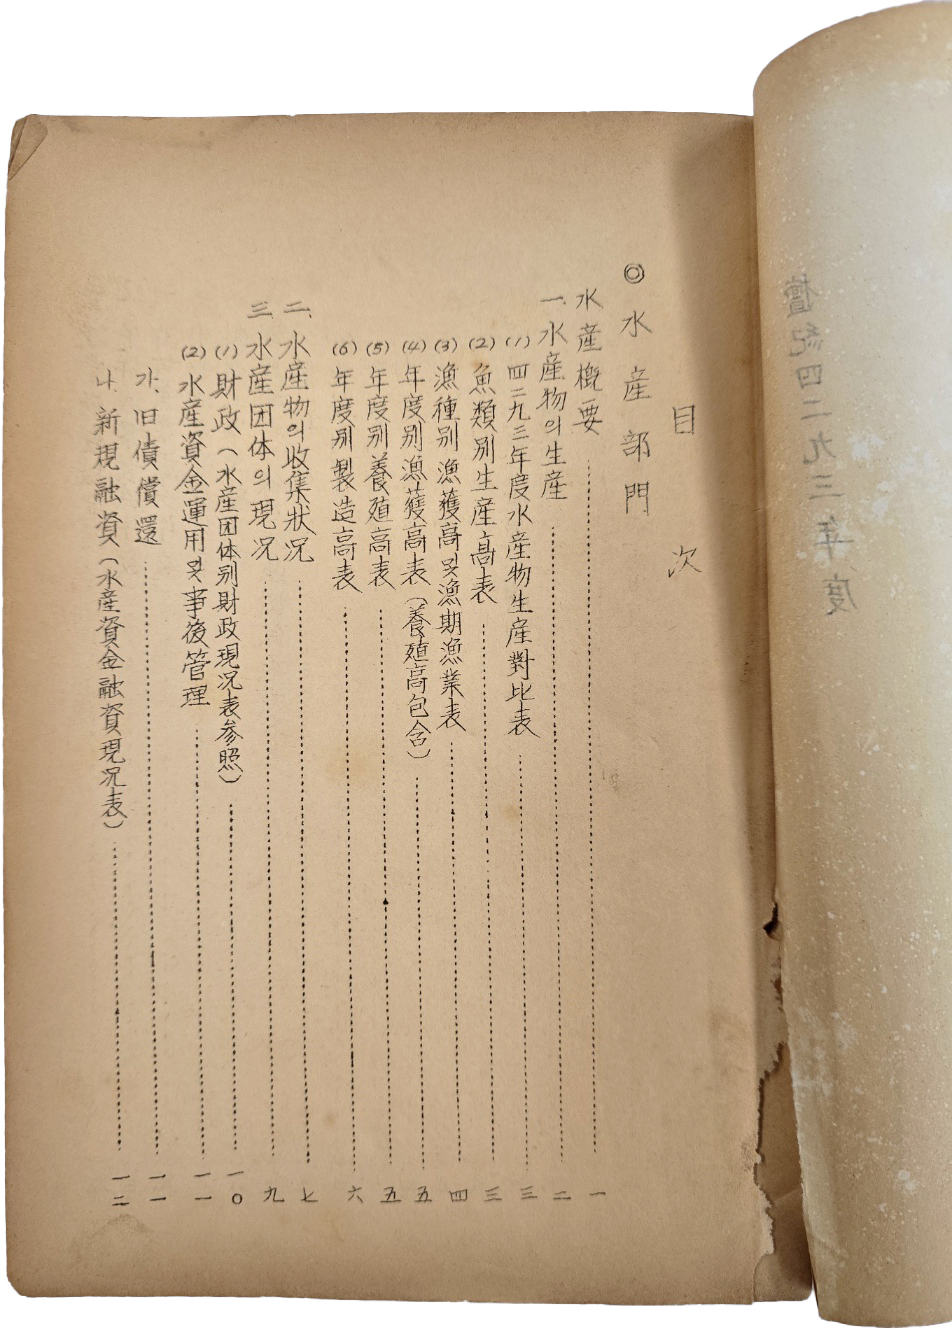 檀紀四二九三年度
目次
◎水産部門
水産概要 一
一、水産物의生産 二
(1) 四二九三年度水産物生産對比表 三
(2) 魚類別生産高表 三
(3) 漁種別漁獲高및漁期漁業表 四
(4) 年度別漁獲高表(養殖高包含) 五
(5) 年度別養殖高表 五
(6) 年度別製造高表 六
二、水産物의收集狀况 七
三、水産団体의現况 九
(1) 財政(水産団体別財政現况表参照) 一〇
(2) 水産資金運用및事後管理 一一
가、旧債償還 一一
나、新規融資(水産資金融資現况表) 一二